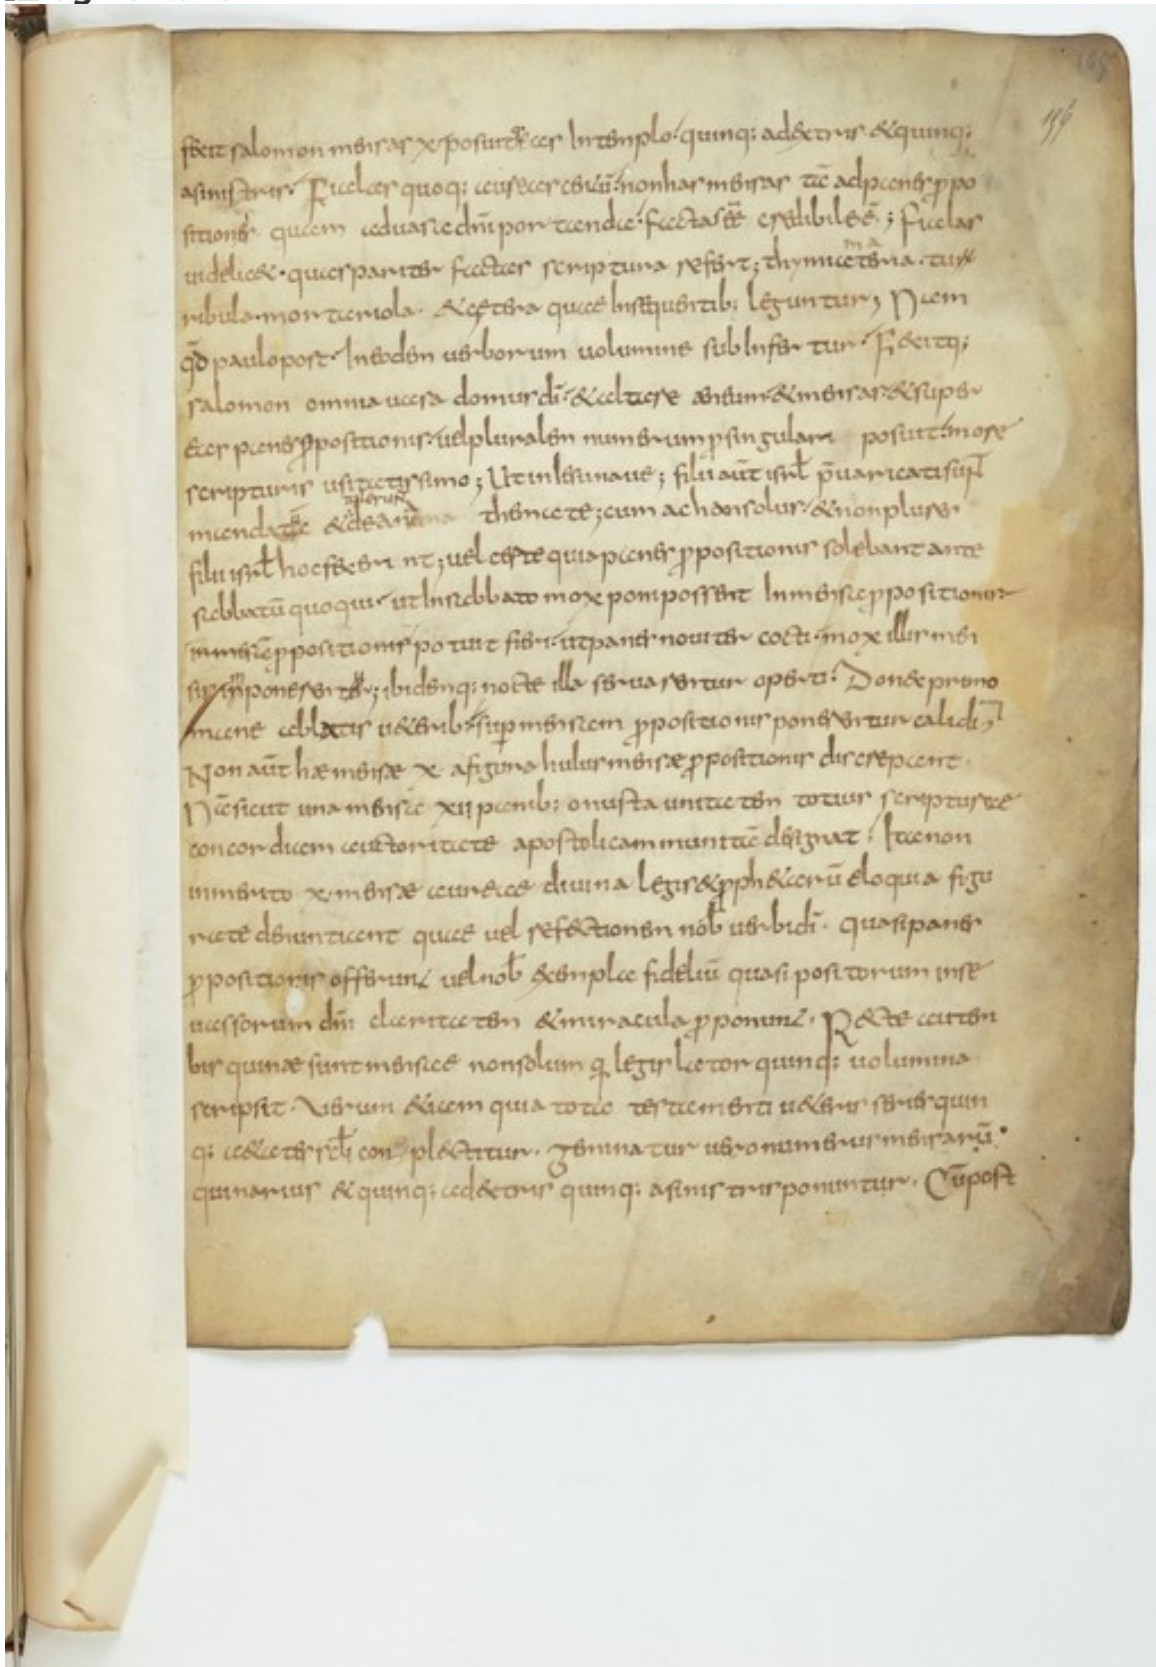 156
fecit salomon mensas x· posuit eas In templo· quinq; ad dextris &quinq;
asinistris· Ficelas quoq;
sitionis quae ad uasa dn̄i portanda· factas eē credibile ē·; Ficelas
uidelic&· quas pariter factas scriptura refert; thymiateria· tur
ribula· mortariola· &cętera quae Insequentib; leguntur; Nam
qd̄ paulo post· In eodem uerborum uolumine sub Infertur· Fecitq;
salomon omnia uasa domus dī· &altare aureum·&mensas·&super
eas panes ꝓpositionis·uel pluralem numerum ꝓ singulari posuit· more
scripturis usitatissimo; Ut in Iesu naue; filii aūt isrl̄ p̄uaricati sun̄t
mandatū & thema te; cum achan solus·&non plures
filii isrl̄ hoc fecerint; uel certe quia panes ꝓpositionis solebant ante
sabbatū quoqui· ut In sabbato mox poni possent In mensa ꝓpositionis
In mensa ꝓpositionis potuit fieri· ut panes nouiter cocti· mox illis men
sis Inponerentur; ibidemq; nocte illa seruarentur operti· Donec primo
mane ablatis u&erib; sup mensam ꝓpositionis ponerentur calidi;
Non aūt hae mensae x· a figura huius mensae ꝓpositionis discrepant·
Nā sicut una mensa xii panib; onusta unitatem totius scripturae
concordiam auctoritate apostolicam munitā designat· Ita non
inmerito x· mensae aureae diuina legis &ꝓph&arū eloquia figu
rate denuntiant quae uel refectionem nob̄ uerbi dī· quasi panes
ꝓpositionis offerunt uel nob̄ exempla fideliū quasi positorum
cessorum dn̄i claritatem &miracula ꝓponunt· Recte autem
bis quinae sunt mensae non solum q legis lator quinq; uolumina
scripsit· Uerum &iam quia tota testamenti u&eris series quin
q; aetates scl̄i complectitur· geminatur uero numerus mensarū·
quinarius &quinq; ad dextris quinq; a sinistris ponuntur· Cū post